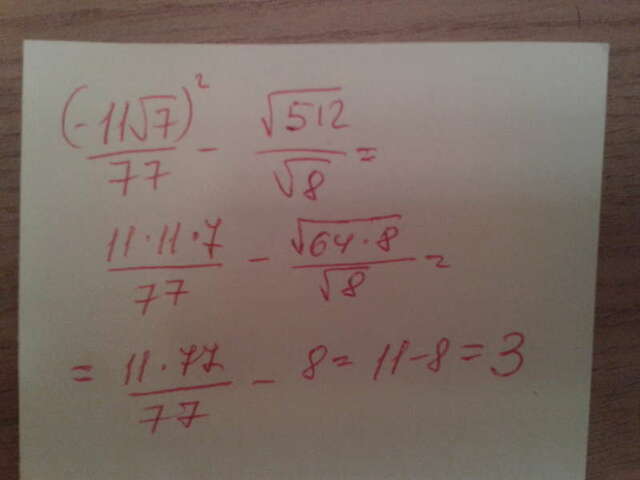 (-11√7)²/77 - √512/√8 =
11·11·7/77 - √64·8/√8 =
= 11·77/77 - 8 = 11-8 = 3